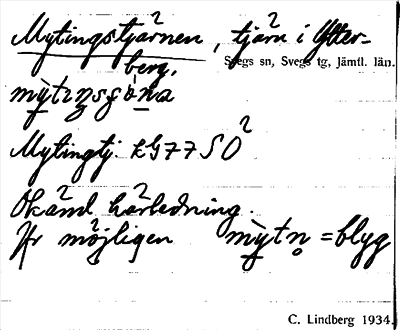 Mytingstjärnen, tjärn i Ytter-
berg.
Svegs sn, Svegs tg, Jämtl. län.
Mytingtj. kG77SO
Okänd härledning.
Är möjligen mỳtn̥ = blyg
C. Lindberg 1934.